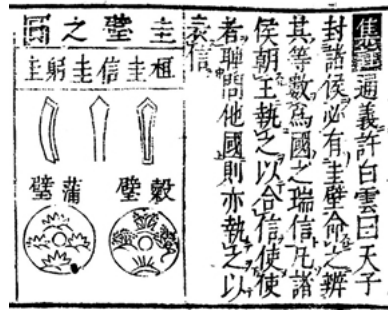 通義許白雲曰天子
封諸侯必有圭璧命之辨
其等數爲國之瑞信凡諸
侯朝王執之以合信使使
者聘問他國則亦執之以
信
圭璧之圖
桓圭
信圭
躬圭
穀璧
蒲璧